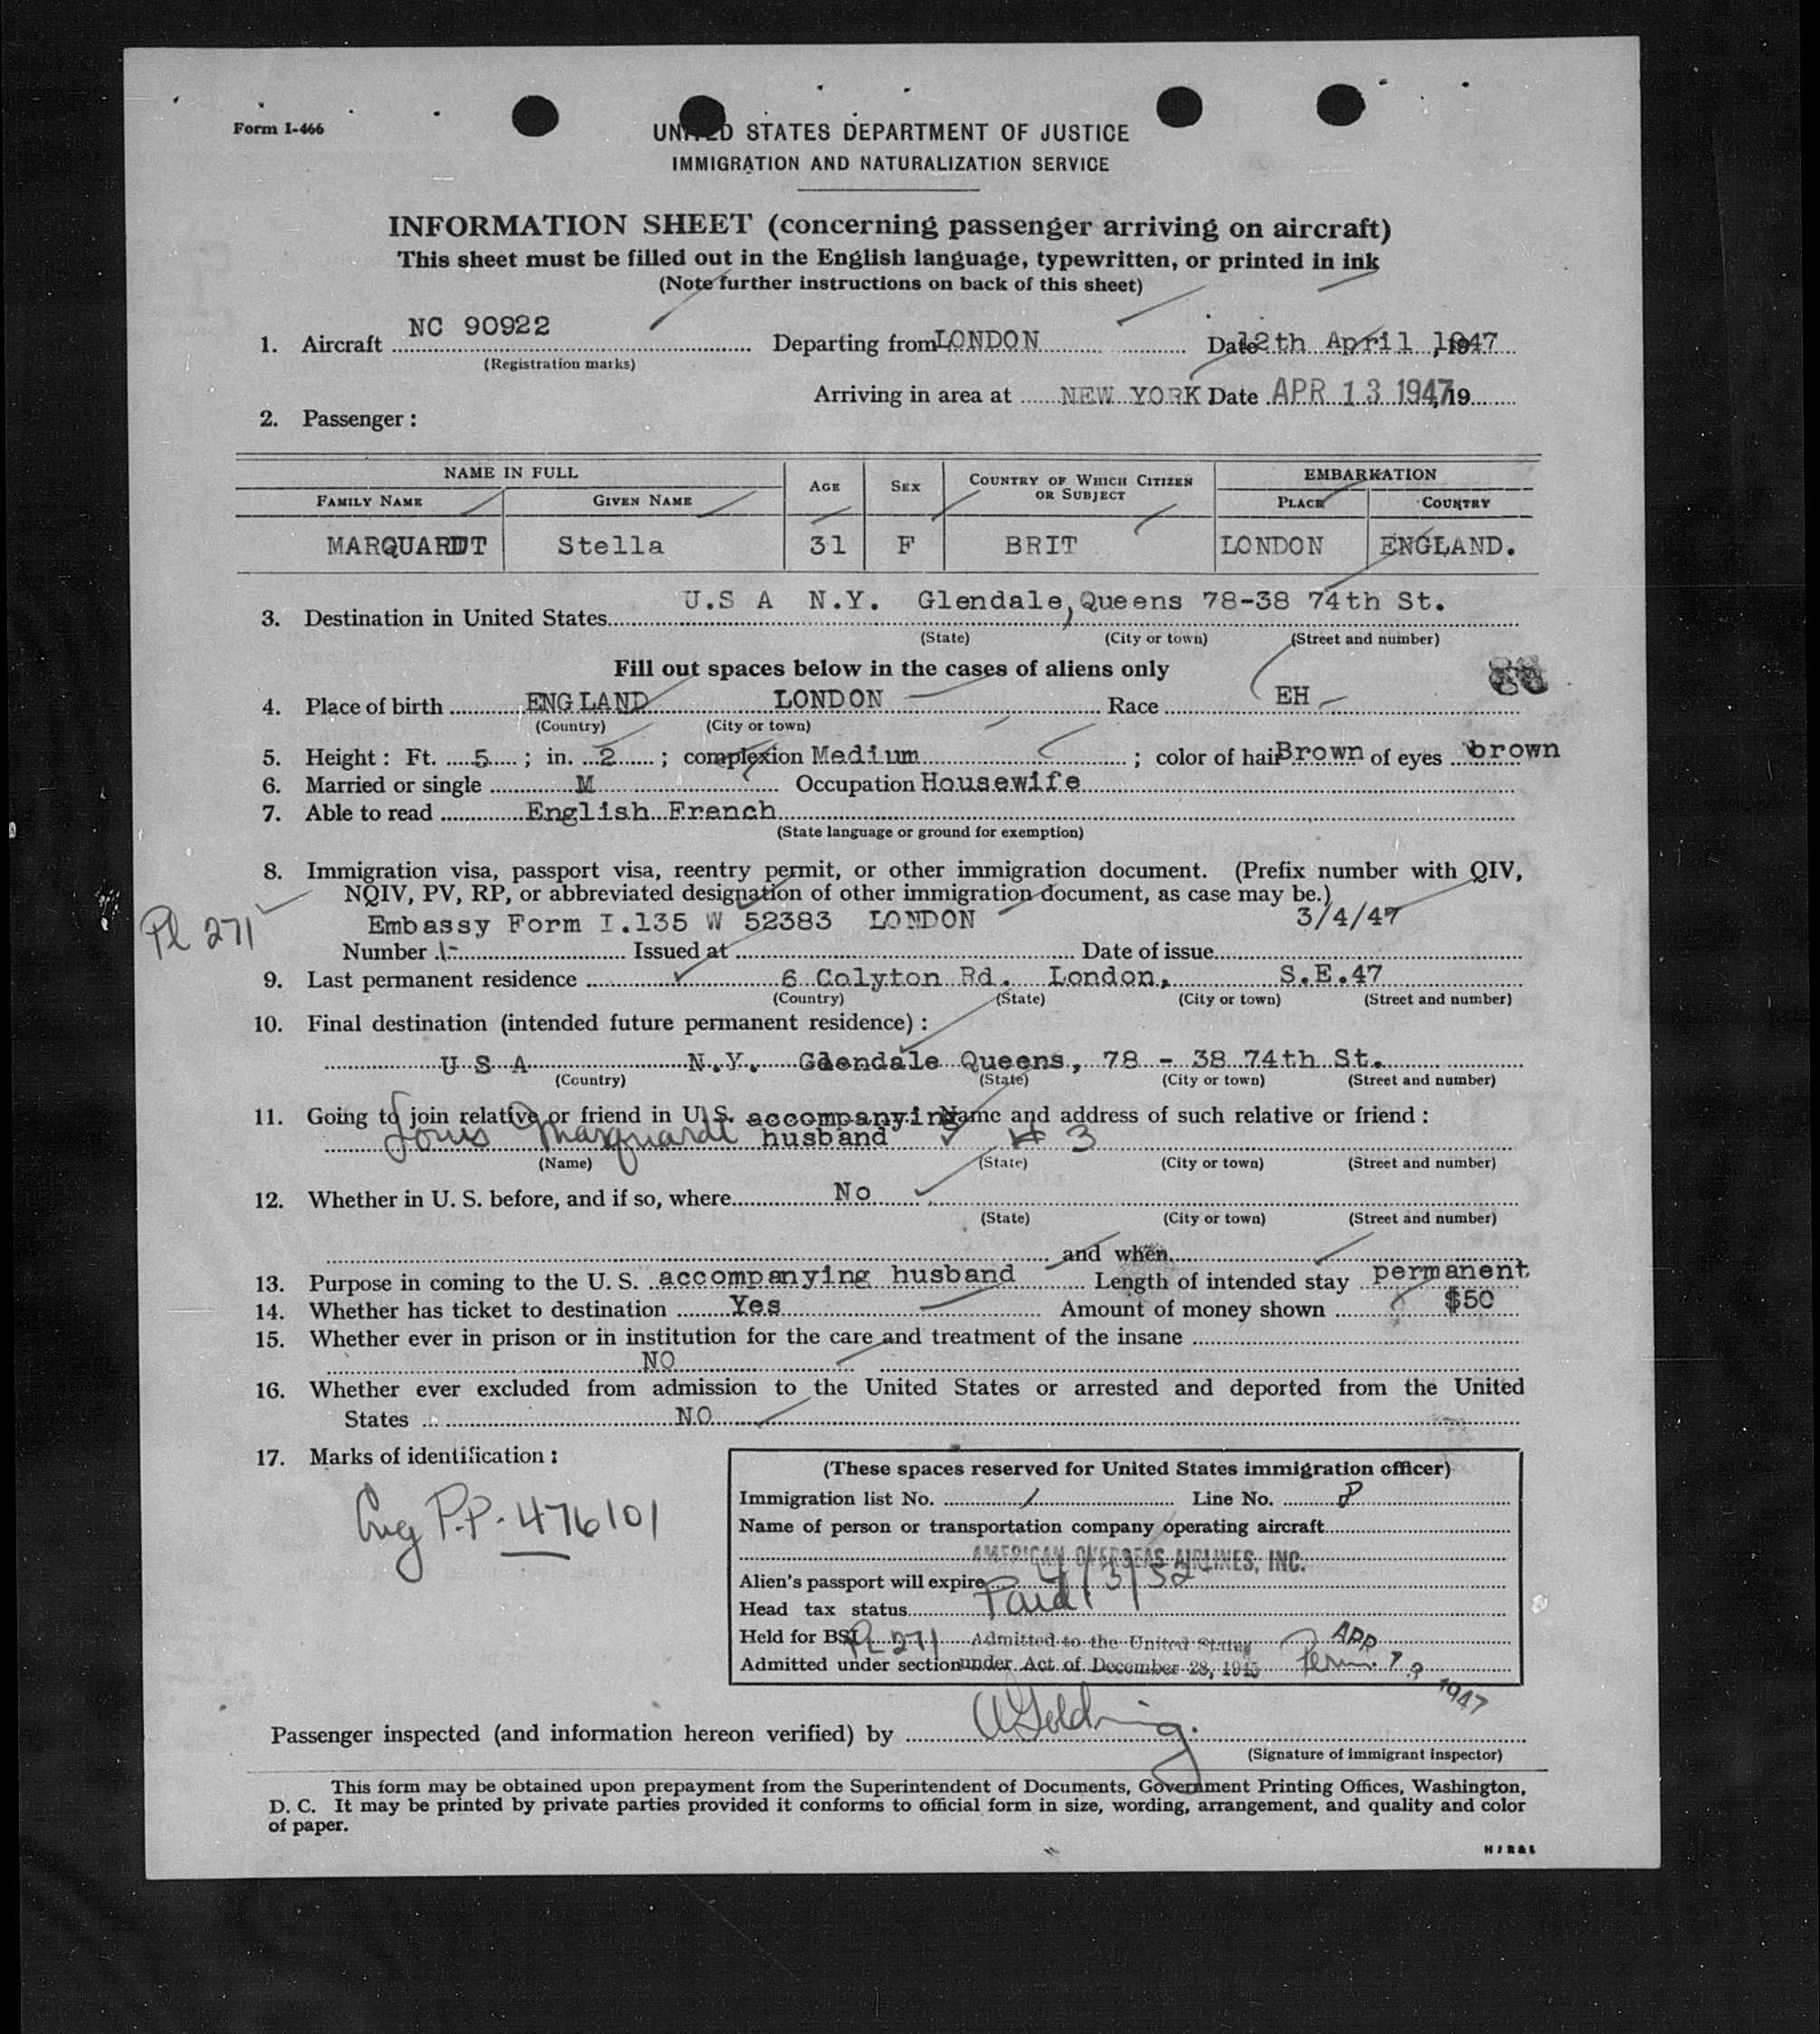 Form I-466
UNITED STATES DEPARTMENT OF JUSTICE
IMMIGRATION AND NATURALIZATION SERVICE
INFORMATION SHEET (concerning passenger arriving on aircraft)
This sheet must be filled out in the English language, typewritten, or printed in ink
(Note further instructions on back of this sheet)
1. Aircraft NC 90922 Departing from LONDON Date 12th April 1947, 19
(Registration marks)
Arriving in area at NEW YORK Date APR 13 1947, 19
2. Passenger:
NAME IN FULL AGE SEX COUNTRY OF WHICH CITIZEN OR SUBJECT EMBARKATION
FAMILY NAME GIVEN NAME PLACE COUNTRY
MARQUARDT Stella 31 F BRIT LONDON ENGLAND.
3. Destination in United States U.S A N.Y. Glendale, Queens 78-38 74th St.
(State) (City or town) (Street and number)
Fill out spaces below in the cases of aliens only
4. Place of birth ENGLAND LONDON Race EH
(Country) (City or town)
5. Height: Ft. 5; in. 2; complexion Medium; color of hair Brown of eyes brown
6. Married or single M Occupation Housewife
7. Able to read English French
(State language or ground for exemption)
8. Immigration visa, passport visa, reentry permit, or other immigration document. (Prefix number with QIV,
NQIV, PV, RP, or abbreviated designation of other immigration document, as case may be.)
PL 271
Embassy Form I.135 W 52383 LONDON 3/4/47
Number Issued at Date of issue
9. Last permanent residence 6 Colyton Rd. London, S.E.47
(Country) (State) (City or town) (Street and number)
10. Final destination (intended future permanent residence):
U S A N.Y. Glendale Queens, 78 - 38 74th St.
(Country) (State) (City or town) (Street and number)
11. Going to join relative or friend in U. S. accompanying Name and address of such relative or friend:
Louis Marquardt husband # 3
(Name) (State) (City or town) (Street and number)
12. Whether in U. S. before, and if so, where No
(State) (City or town) (Street and number)
and when
13. Purpose in coming to the U. S. accompanying husband Length of intended stay permanent
14. Whether has ticket to destination Yes Amount of money shown $50
15. Whether ever in prison or in institution for the care and treatment of the insane
NO
16. Whether ever excluded from admission to the United States or arrested and deported from the United
States NO
17. Marks of identification:
P.P. 476101
(These spaces reserved for United States immigration officer)
Immigration list No. 1 Line No. 8
Name of person or transportation company operating aircraft
AMERICAN OVERSEAS AIRLINES, INC.
Alien's passport will expire 4/3/52
Head tax status Paid
Held for BSI PL 271 Admitted to the United States
Admitted under section under Act of December 28, 1945 Perm. APR 1947
Passenger inspected (and information hereon verified) by
(Signature of immigrant inspector)
This form may be obtained upon prepayment from the Superintendent of Documents, Government Printing Offices, Washington,
D. C. It may be printed by private parties provided it conforms to official form in size, wording, arrangement, and quality and color
of paper.